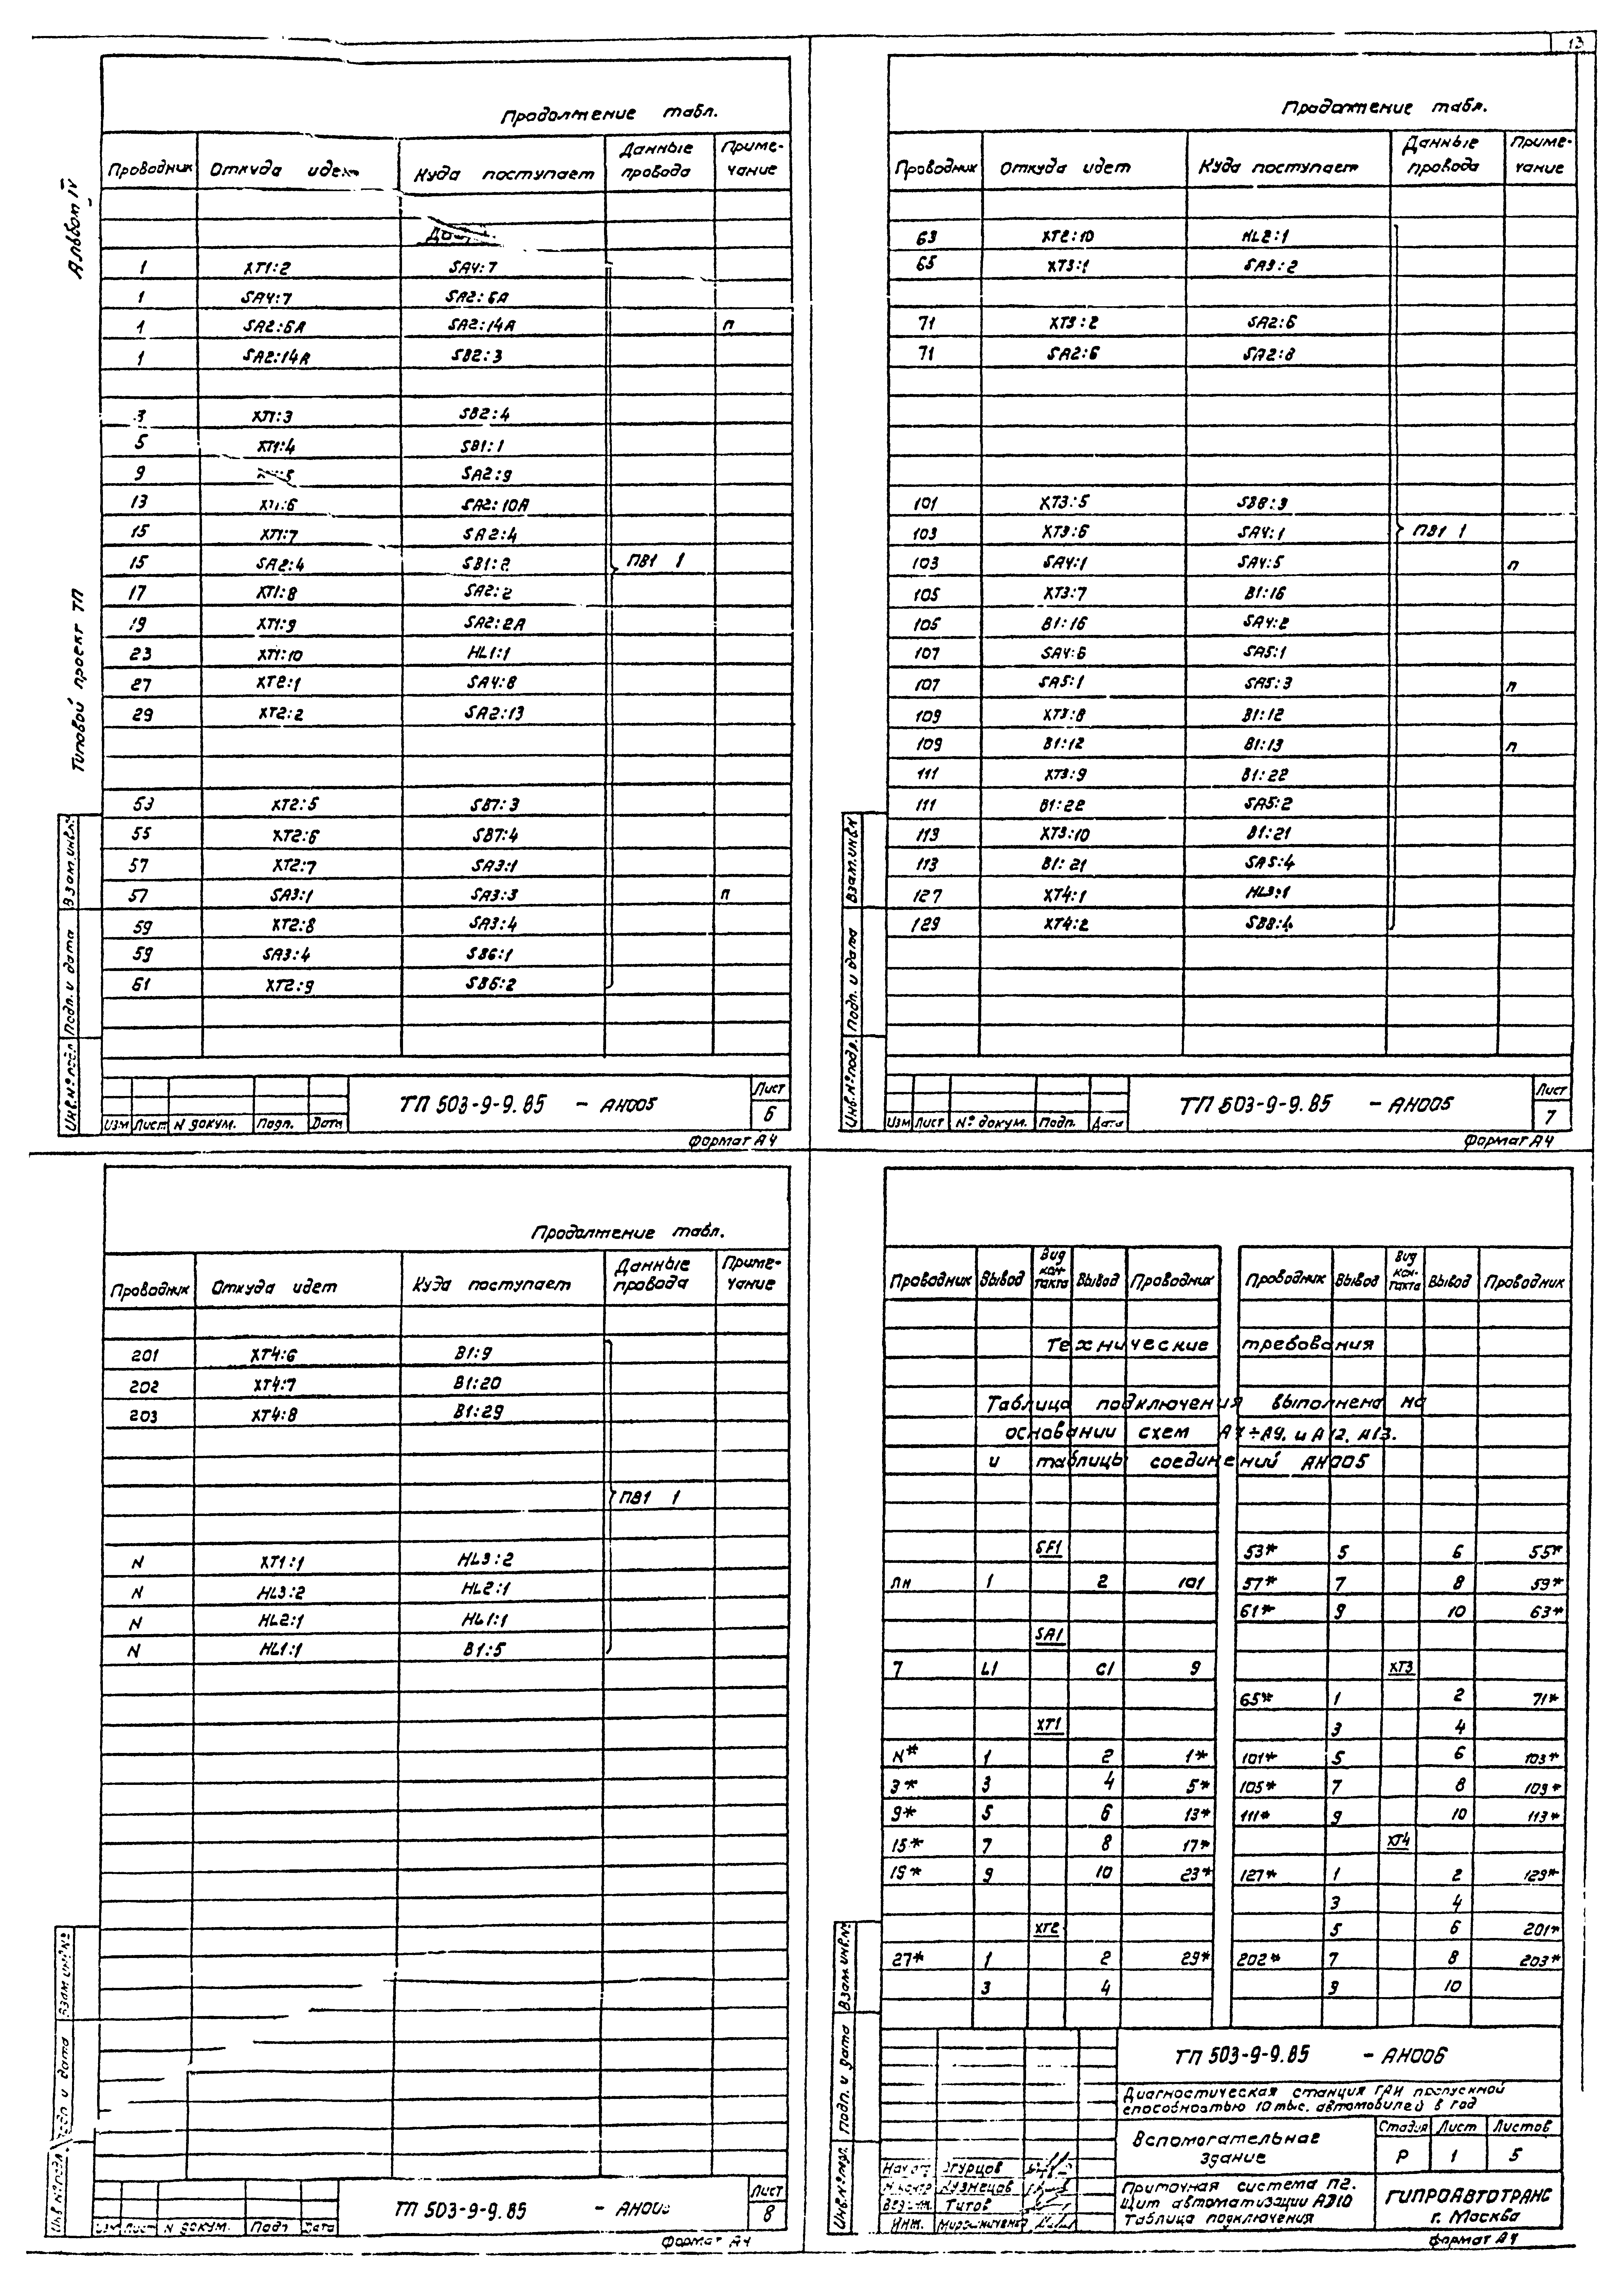 13
Альбом IV
Типовой проект ТП
Продолжение табл.
Проводник Откуда идет Куда поступает Данные провода Примечание
1 XT1:2 SA4:7
1 SA4:7 SA2:6A
1 SA2:6A SA2:14A п
1 SA2:14A SB2:3
3 XT1:3 SB2:4
5 XT1:4 SB1:1
9 SA2:9
13 XT1:6 SA2:10A
15 XT1:7 SA2:4
15 SA2:4 SB1:2 ПВ1 1
17 XT1:8 SA2:2
19 XT1:9 SA2:2A
23 XT1:10 HL1:1
27 XT2:1 SA4:8
29 XT2:2 SA2:13
53 XT2:5 SB7:3
55 XT2:6 SB7:4
57 XT2:7 SA3:1
57 SA3:1 SA3:3 п
59 XT2:8 SA3:4
59 SA3:4 SB6:1
61 XT2:9 SB6:2
Взам.инв.№
Подп. и дата
Инв.№ подл.
Изм Лист N докум. Подп. Дата
ТП 503-9-9.85 - АН005
Лист
6
Формат А4
Продолжение табл.
Проводник Откуда идет Куда поступает Данные провода Примечание
63 XT2:10 HL2:1
65 XT3:1 SA3:2
71 XT3:2 SA2:6
71 SA2:6 SA2:8
101 XT3:5 SB8:3
103 XT3:6 SA4:1 ПВ1 1
103 SA4:1 SA4:5 п
105 XT3:7 B1:16
105 B1:16 SA4:2
107 SA4:6 SA5:1
107 SA5:1 SA5:3 п
109 XT3:8 B1:12
109 B1:12 B1:13 п
111 XT3:9 B1:22
111 B1:22 SA5:2
113 XT3:10 B1:21
113 B1:21 SA5:4
127 XT4:1 HL3:1
129 XT4:2 SB8:4
Взам.инв.№
Подп. и дата
Инв.№ подл.
Изм Лист № докум. Подп. Дата
ТП 503-9-9.85 - АН005
Лист
7
Формат А4
Продолжение табл.
Проводник Откуда идет Куда поступает Данные провода Примечание
201 XT4:6 B1:9
202 XT4:7 B1:20
203 XT4:8 B1:29
ПВ1 1
N XT1:1 HL3:2
N HL3:2 HL2:1
N HL2:1 HL1:1
N HL1:1 B1:5
Взам инв.№
Подп. и дата
Инв № подл.
Изм Лист N докум. Подп Дата
ТП 503-9-9.85 - АН00
Лист
8
Формат А4
Проводник Вывод Вид контакта Вывод Проводник Проводник Вывод Вид контакта Вывод Проводник
Технические требования
Таблица подключения выполнена на
основании схем А4÷А9. и А12, А13.
и таблицы соединений АН005
SF1 53* 5 6 55*
ПН 1 2 101 57* 7 8 59*
61* 9 10 63*
SA1
7 L1 C1 9 XT3
65* 1 2 71*
XT1 3 4
N* 1 2 1* 101* 5 6 103*
3* 3 4 5* 105* 7 8 109*
9* 5 6 13* 111* 9 10 113*
15* 7 8 17* XT4
19* 9 10 23* 127* 1 2 129*
3 4
XT2 5 6 201*
27* 1 2 29* 202* 7 8 203*
3 4 9 10
Взам инв.№
Подп. и дата
Инв.№ подл.
ТП 503-9-9.85 - АН006
Диагностическая станция ГАИ пропускной
способностью 10 тыс. автомобилей в год
Вспомогательное
здание
Стадия Лист Листов
Р 1 5
Нач от Огурцов
Н.контр Кузнецов
Вед.инж. Титов
Инж.
Приточная система П2.
Щит автоматизации АЭ10
Таблица подключения
ГИПРОАВТОТРАНС
г. Москва
Формат А4